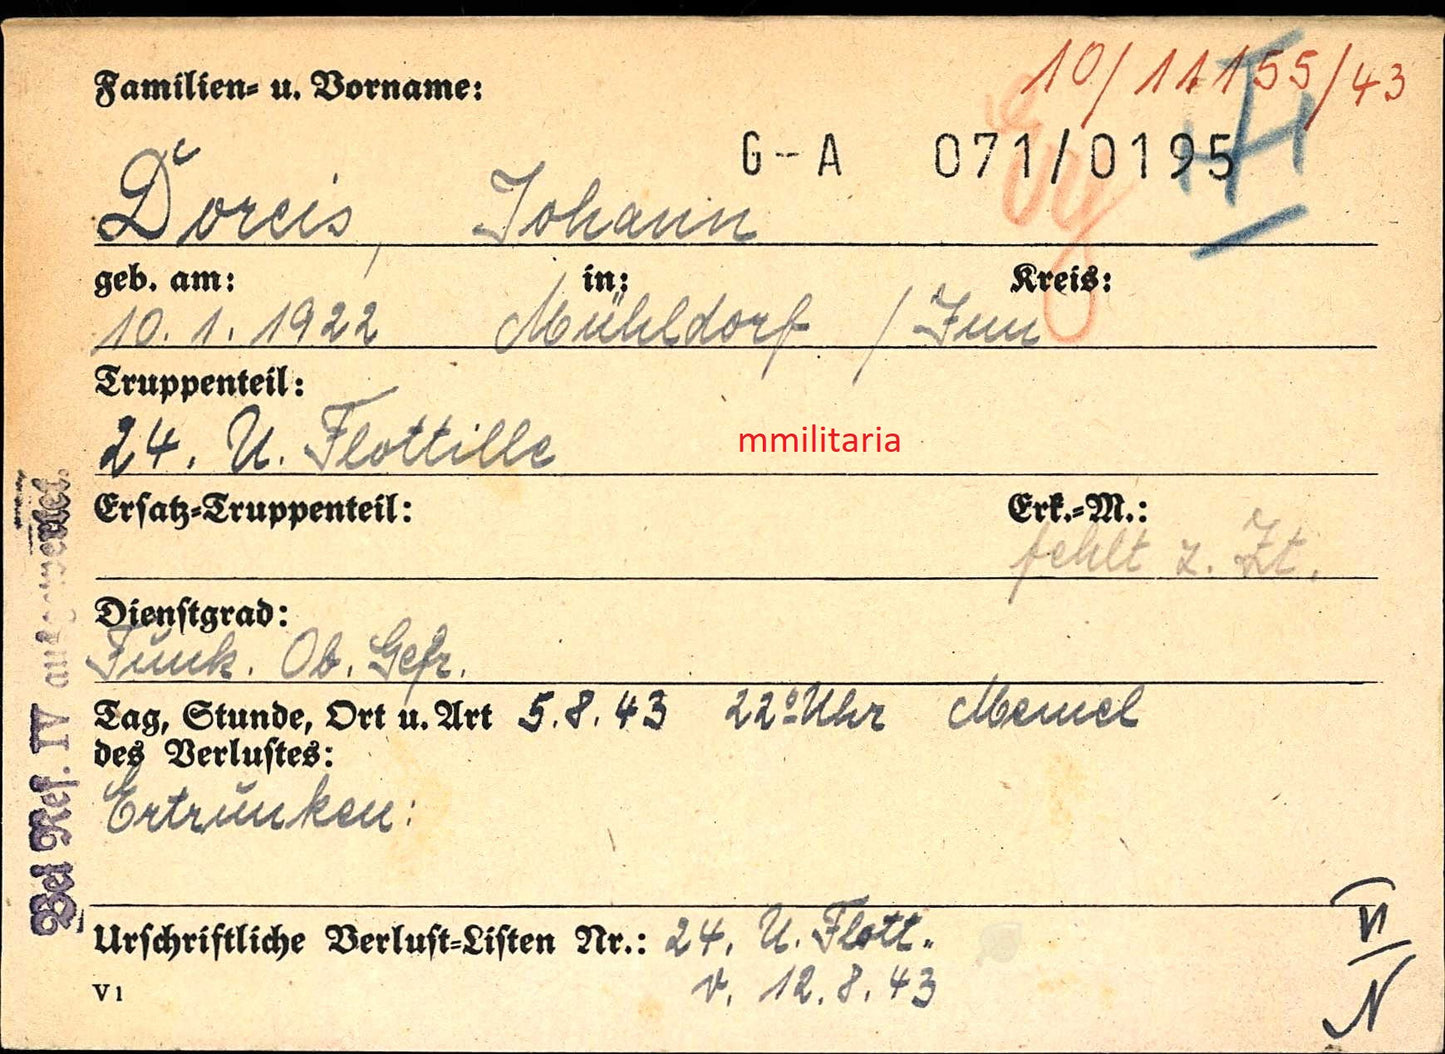 10/11155/43
Familien- u. Vorname:
G-A 071/0195
Doreis, Johann
geb. am: in: Kreis:
10.1.1922 Mühldorf / Inn
Truppenteil:
24. U. Flottille
mmilitaria
Ersatz-Truppenteil: Erk.-M.:
fehlt z. Zt.
Dienstgrad:
Funk. Ob. Gefr.
Tag, Stunde, Ort u. Art 5.8.43 22⁰ Uhr Memel
des Verlustes:
Ertrunken:
Urschriftliche Verlust-Listen Nr.: 24. U. Flott.
v. 12.8.43
V1
Bei Ref. IV ausgewertet.
VI
N